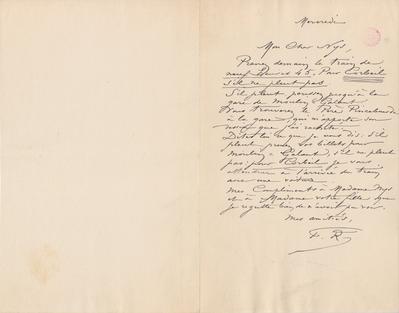 Mercredi
Mon Cher Nys,
Prenez demain le train de
neuf heures 45. Pour Corbeil
s'il ne pleut pas
S'il pleut poussez jusqu'à la
gare de Moulin Galant
Vous trouverez le Père
à la gare, qui m'apporte son
que j'ai
Dites lui ce que je vous dis: s'il
pleut prenez vos billets pour
Moulin-Galant, s'il ne pleut
pas: pour Corbeil je vous
attendrai à l'arrivée du train
avec une voiture
Mes Compliments à Madame Nys
et à Madame votre fille que
je regrette bien de n'avoir pu voir.
Mes amitiés,
F. R.